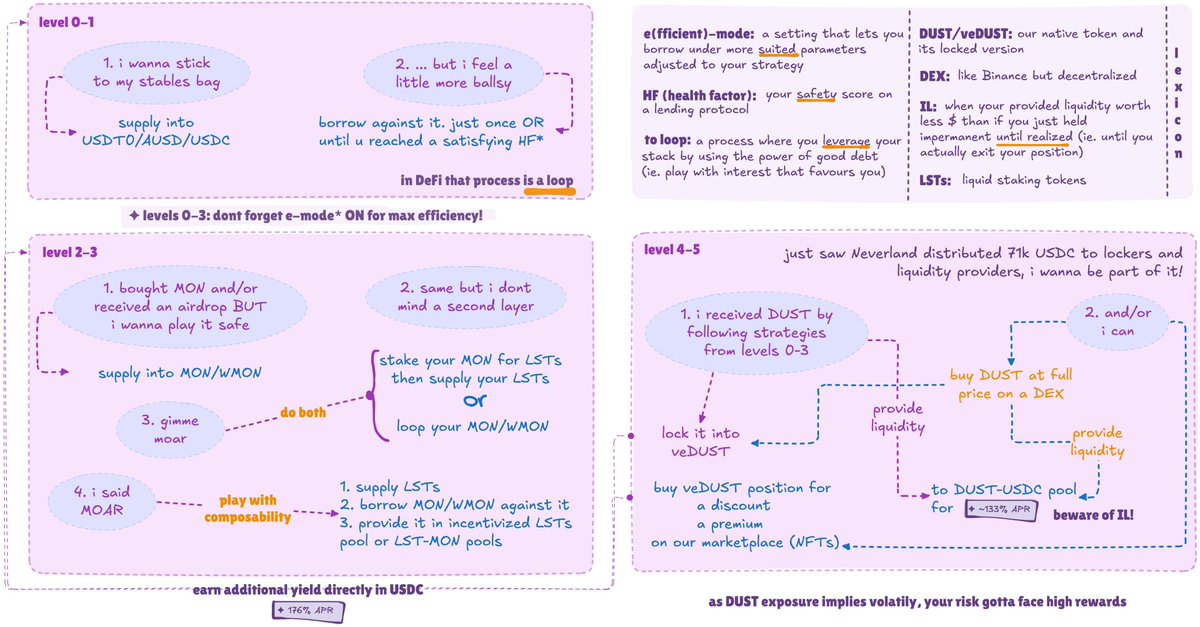 level 0-1
1. i wanna stick
to my stables bag
2. ... but i feel a
little more ballsy
supply into
USDT0/AUSD/USDC
borrow against it. just once OR
until u reached a satisfying HF*
in DeFi that process is a loop
✦ levels 0-3: dont forget e-mode* ON for max efficiency!
e(fficient)-mode: a setting that lets you
borrow under more suited parameters
adjusted to your strategy
HF (health factor): your safety score on
a lending protocol
to loop: a process where you leverage your
stack by using the power of good debt
(ie. play with interest that favours you)
DUST/veDUST: our native token and
its locked version
DEX: like Binance but decentralized
IL: when your provided liquidity worth
less $ than if you just held
impermanent until realized (ie. until you
actually exit your position)
LSTs: liquid staking tokens
lexicon
level 2-3
1. bought MON and/or
received an airdrop BUT
i wanna play it safe
2. same but i dont
mind a second layer
supply into MON/WMON
stake your MON for LSTs
then supply your LSTs
or
loop your MON/WMON
3. gimme
moar
do both
4. i said
MOAR
play with
composability
1. supply LSTs
2. borrow MON/WMON against it
3. provide it in incentivized LSTs
pool or LST-MON pools
earn additional yield directly in USDC
✦ 176% APR
level 4-5
just saw Neverland distributed 71k USDC to lockers and
liquidity providers, i wanna be part of it!
1. i received DUST by
following strategies
from levels 0-3
2. and/or
i can
buy DUST at full
price on a DEX
provide
liquidity
lock it into
veDUST
provide
liquidity
buy veDUST position for
a discount
a premium
on our marketplace (NFTs)
to DUST-USDC pool
for ✦ ~133% APR
beware of IL!
as DUST exposure implies volatily, your risk gotta face high rewards